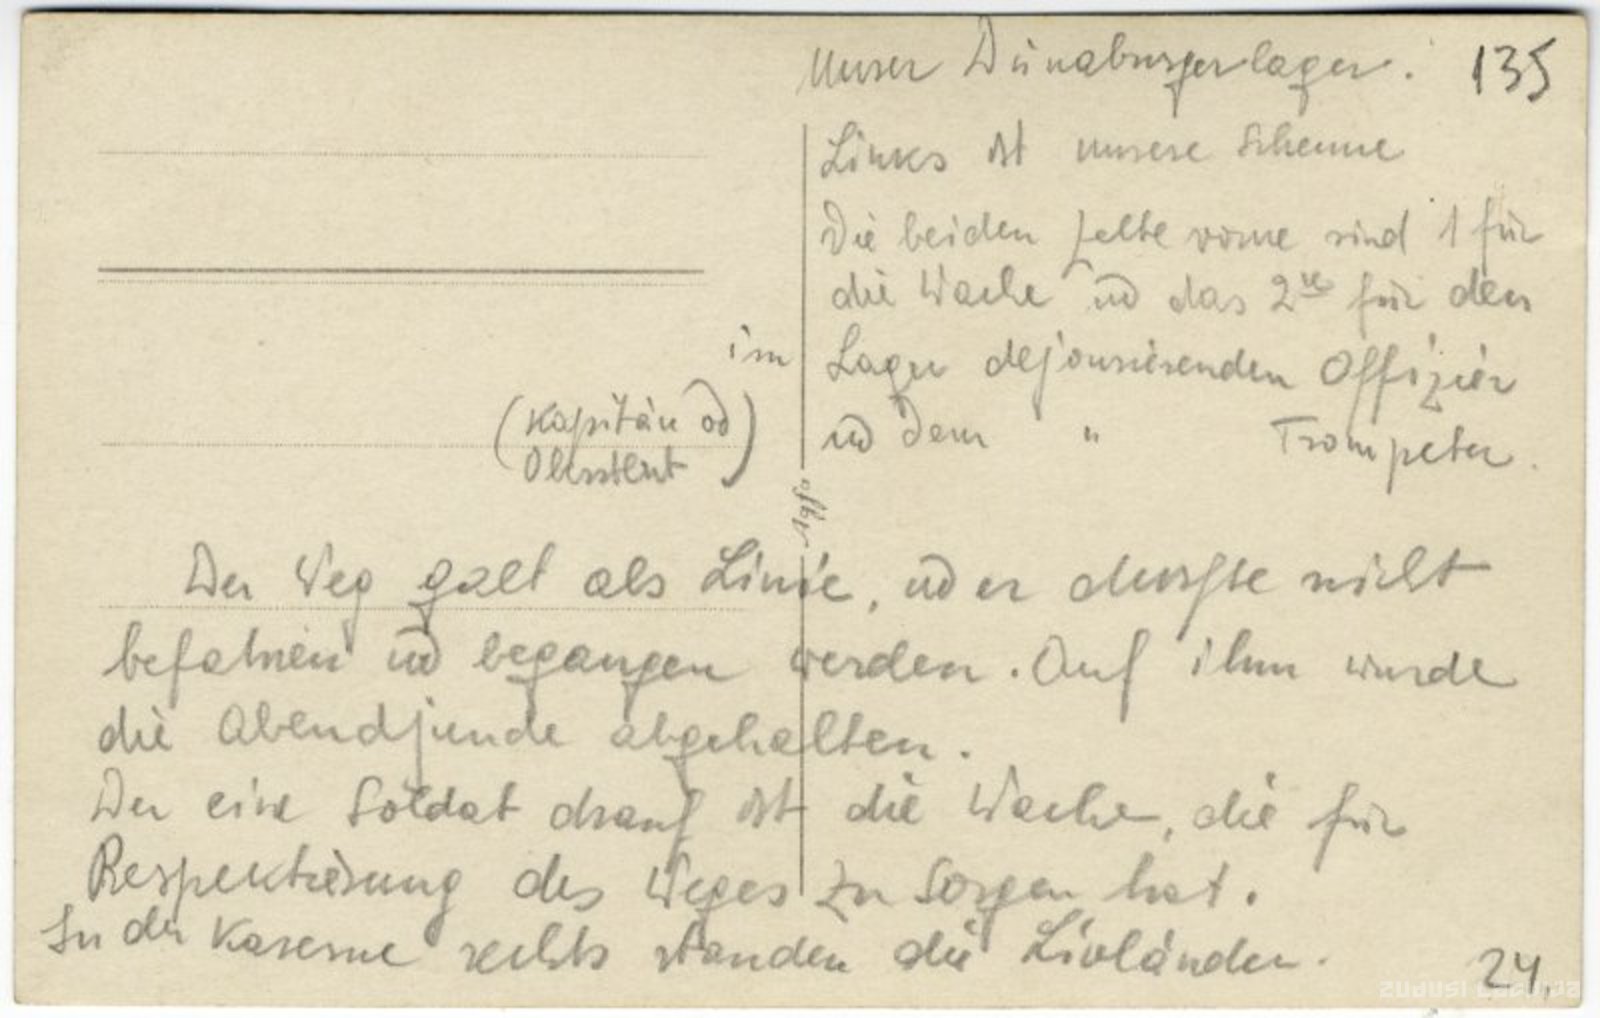 Unser Dünaburgerlager. 135
Links ist unsere Scheune
Die beiden Zelte vorne sind 1 für
die Wache ud das 2te für den
im Lager dejourierenden Offizier
(Kapitän od
Oberstlent)
ud dem " Trompeter.
Der Weg galt als Linie, ud er durfte nicht
befahren ud begangen werden. Auf ihm wurde
die Abendjunde abgehalten.
Der eine Soldat drauf ist die Wache, die für
Respektierung des Weges zu sorgen hat.
In der Kaserne rechts standen die Livländer.
24.
ZUDUSI LATVIJA